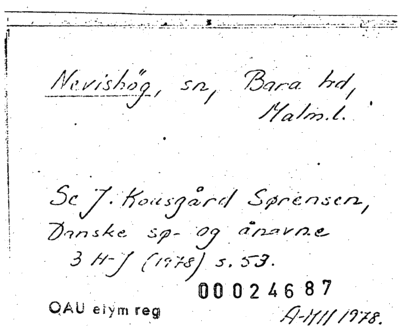 Nevishög, sn, Bara hd,
Malm.l.
Se J. Kousgård Sørensen,
Danske sø- og ånavne
3 H-J (1978) s. 53.
00024687
OAU etym reg
1978.